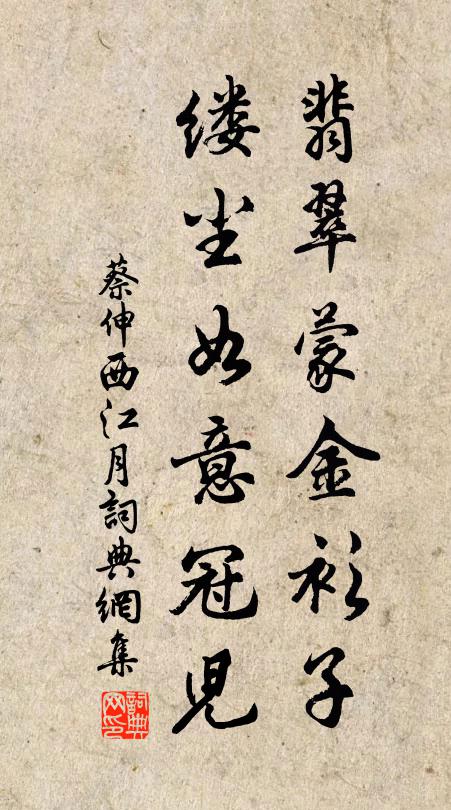 翡翠蒙金衫子
缕尘如意冠児
蔡伸西江月詞典網集
詞典網印